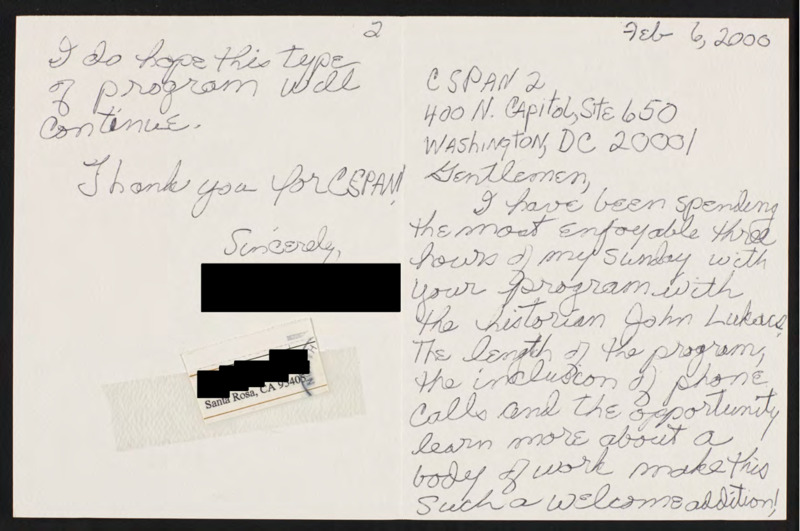 Feb 6, 2000
CSPAN 2
400 N. Capitol, Ste 650
Washington, DC 20001
Gentlemen,
I have been spending
the most enjoyable three
hours of my Sunday with
your program with
the historian John Lukacs.
The length of the program,
the inclusion of phone
calls and the opportunity
learn more about a
body of work make this
such a welcome addition!
2
I do hope this type
of program will
continue.
Thank you for CSPAN!
Sincerely,
Santa Rosa, CA 95405